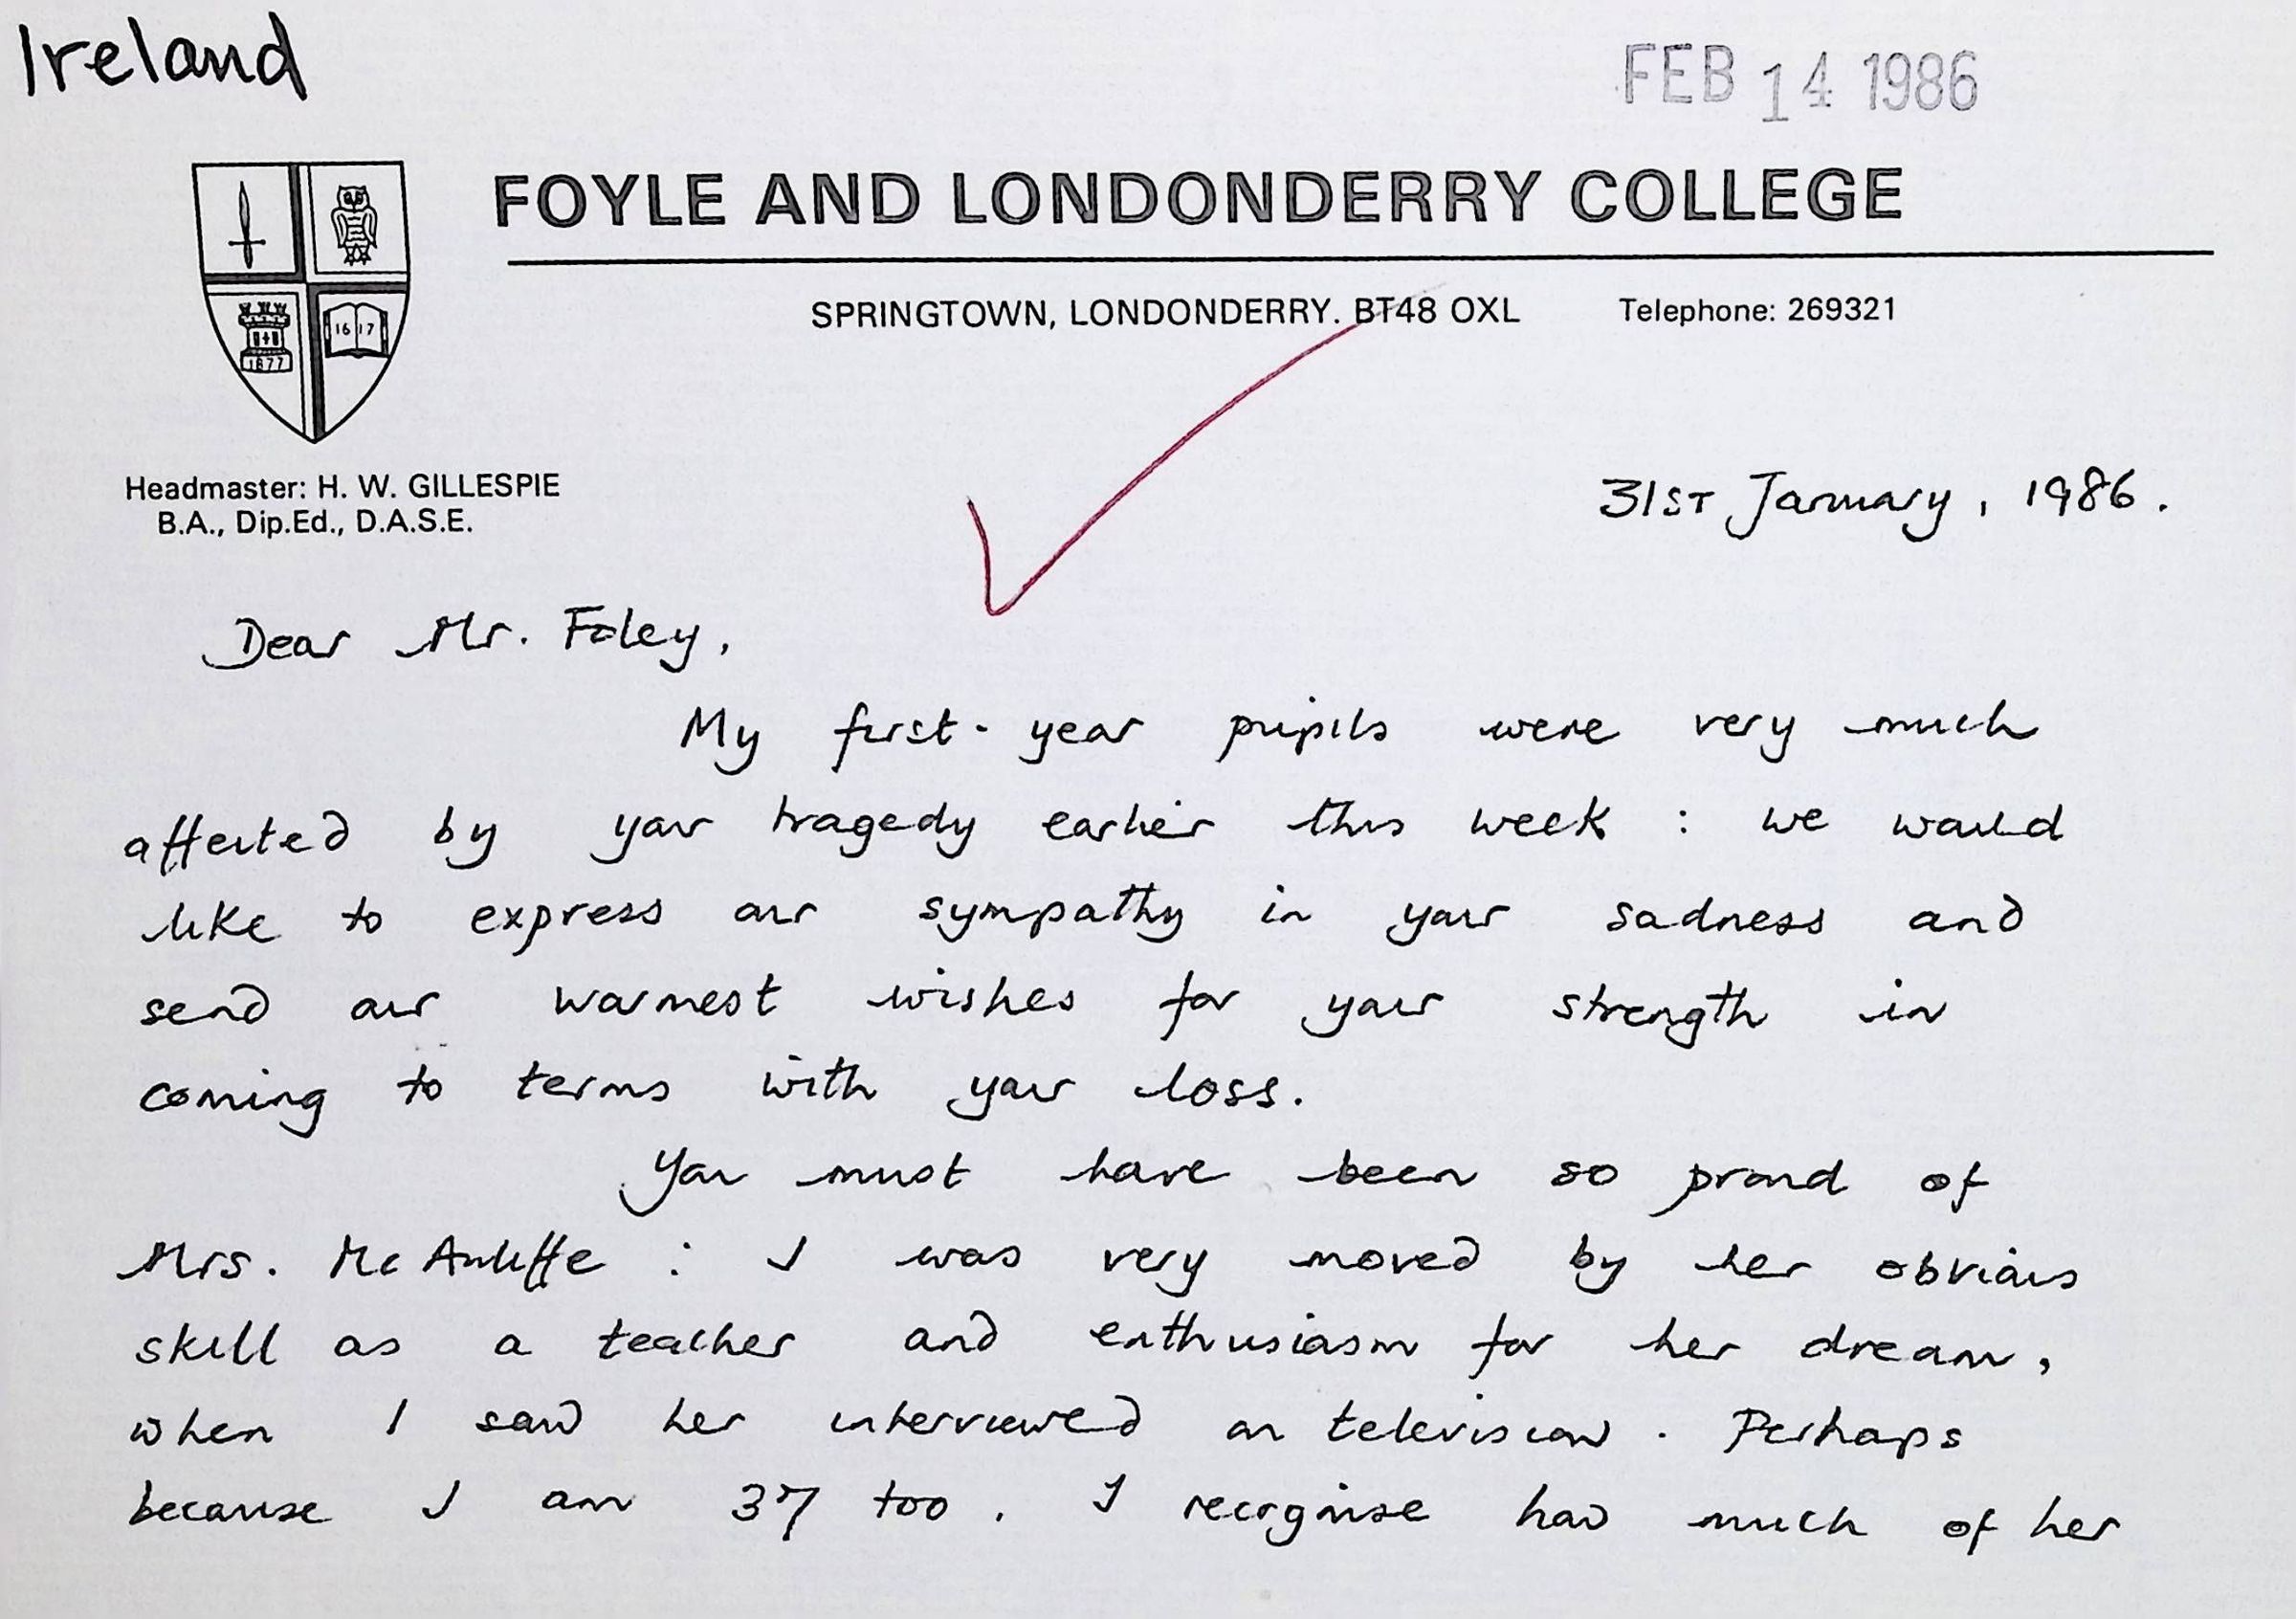 Ireland
FEB 14 1986
FOYLE AND LONDONDERRY COLLEGE
SPRINGTOWN, LONDONDERRY. BT48 OXL Telephone: 269321
16 17
1877
Headmaster: H. W. GILLESPIE
B.A., Dip.Ed., D.A.S.E.
31ST January, 1986.
Dear Mr. Foley,
My first-year pupils were very much
affected by your tragedy earlier this week : we would
like to express our sympathy in your sadness and
send our warmest wishes for your strength in
coming to terms with your loss.
You must have been so proud of
Mrs. McAuliffe : I was very moved by her obvious
skill as a teacher and enthusiasm for her dream,
when I saw her interviewed on television. Perhaps
because I am 37 too. I recognise how much of her